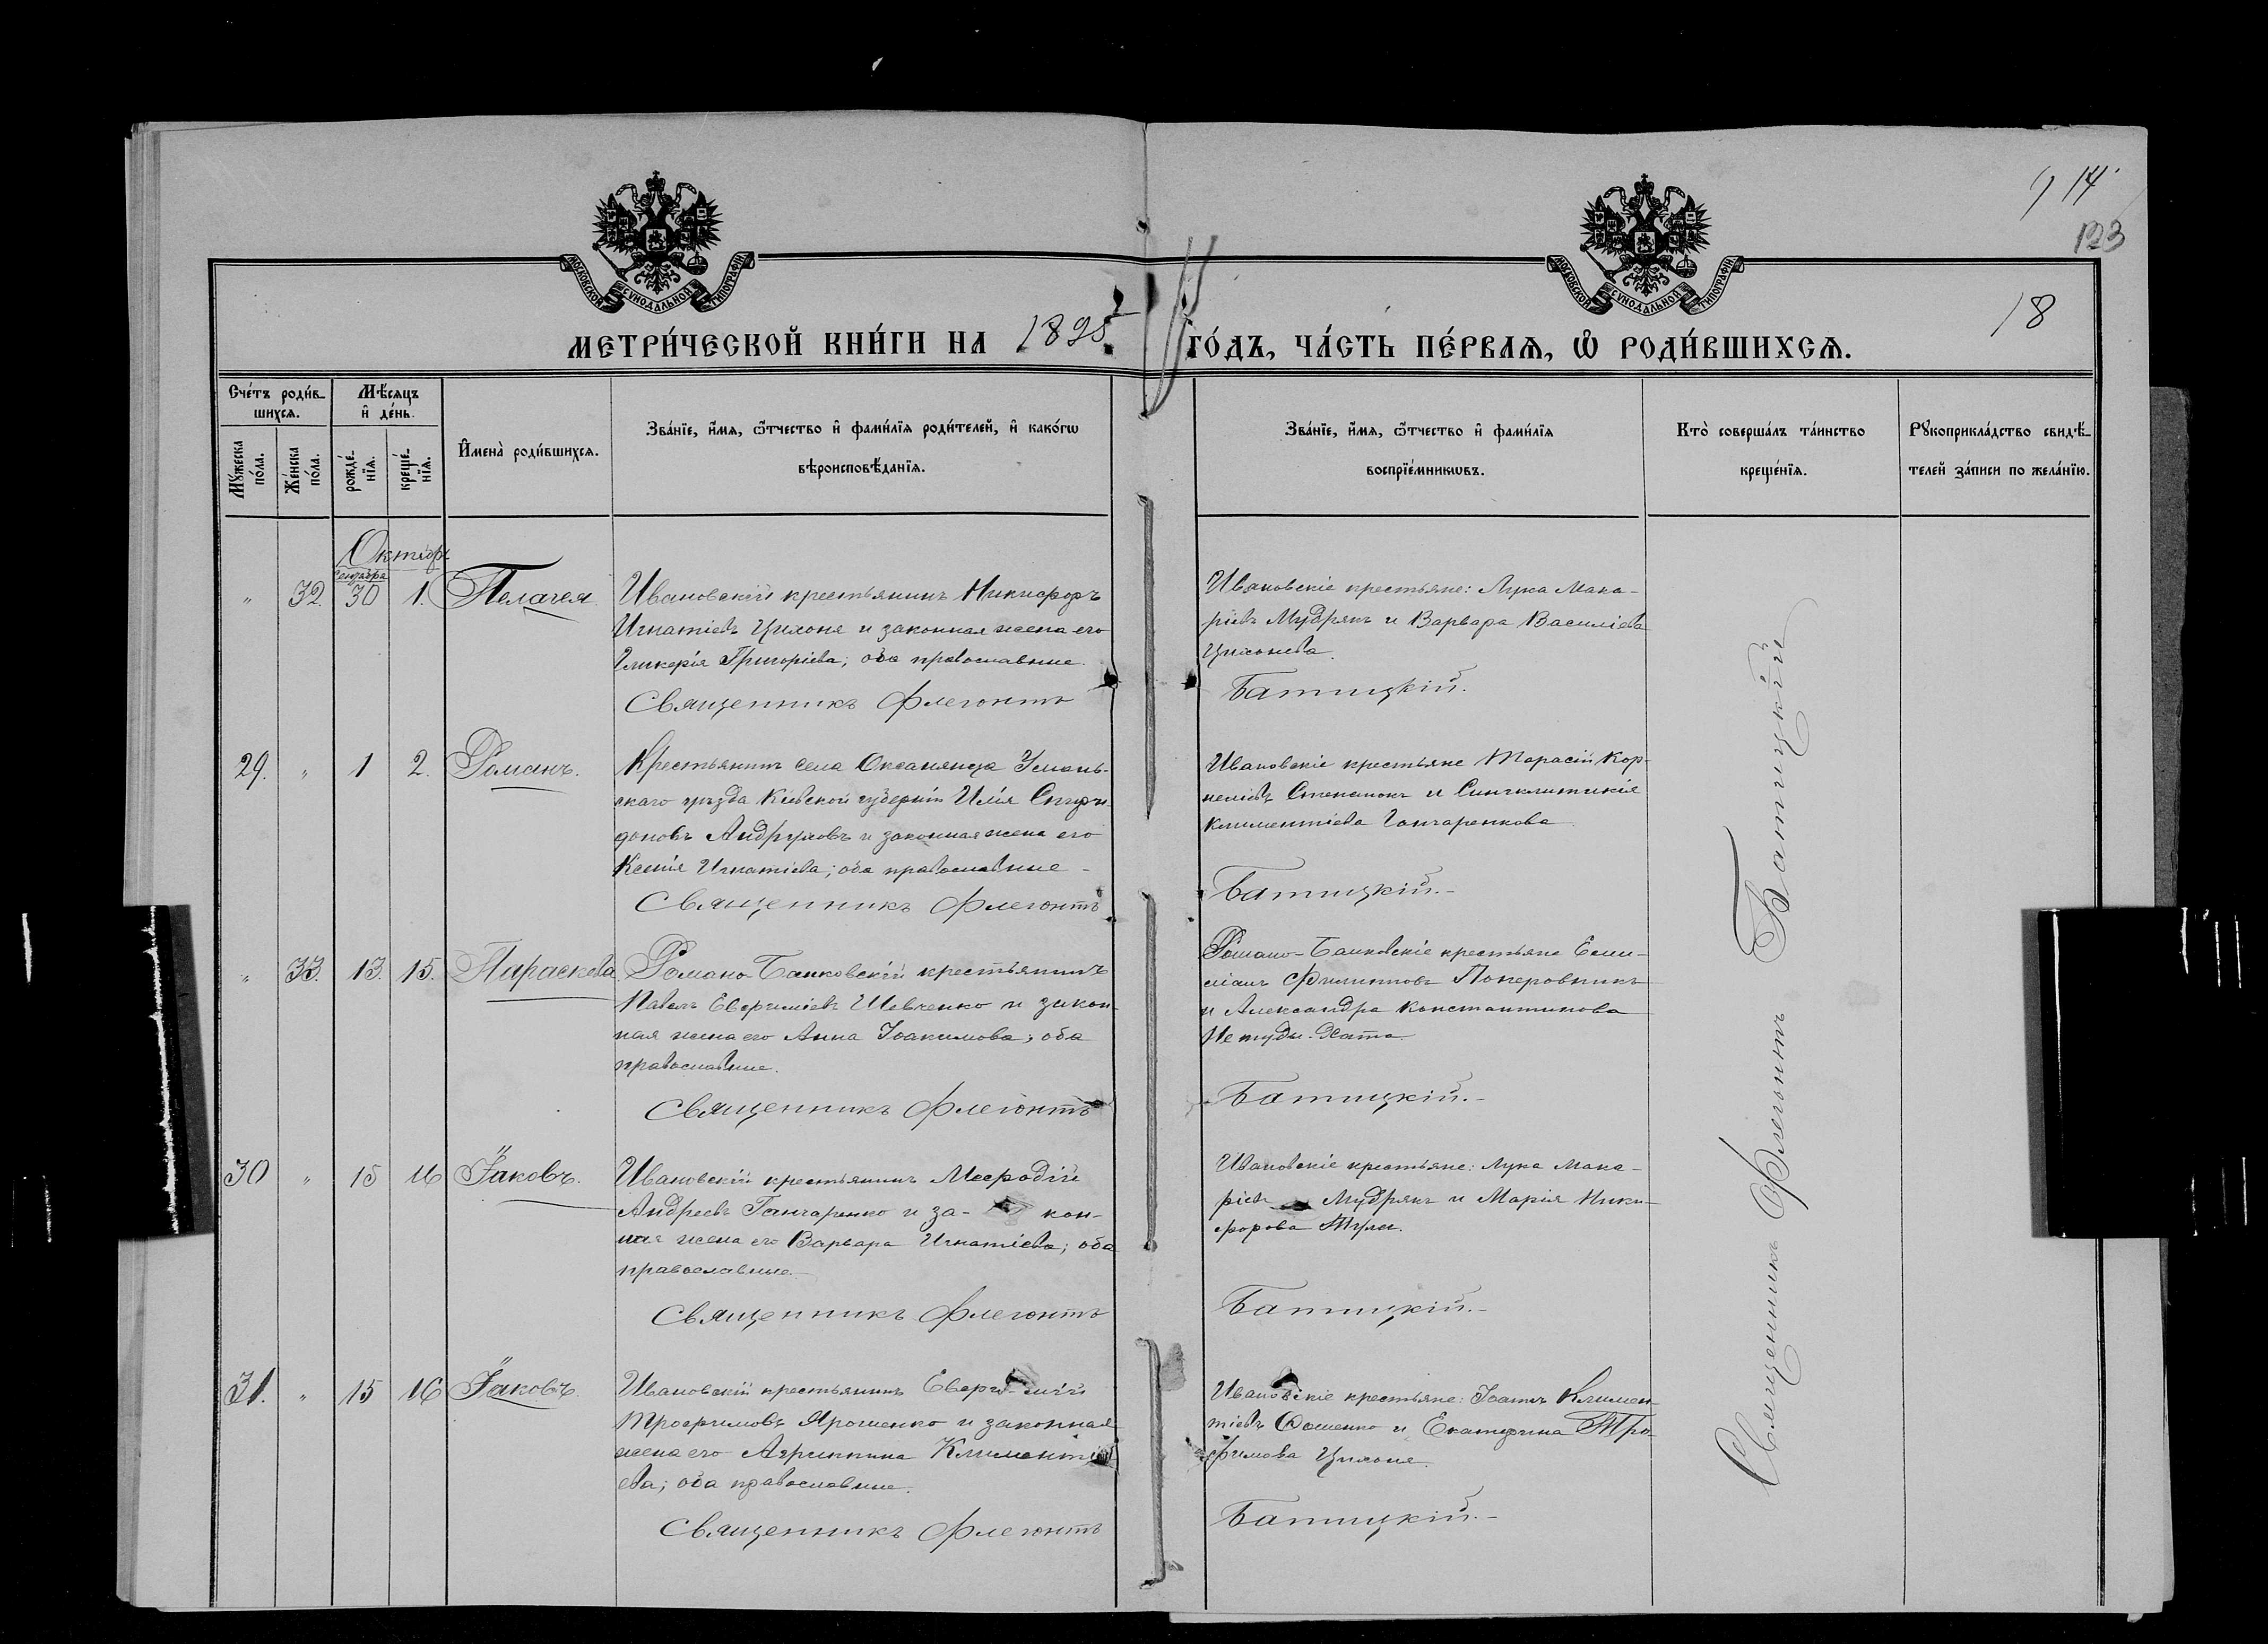 914
123
18
МОСКОВСКОЙ СУНОДАЛЬНОЙ ТИПОГРАФІИ
МОСКОВСКОЙ СУНОДАЛЬНОЙ ТИПОГРАФІИ
МЕТРИ́ЧЕСКОЙ КНИ́ГИ НА 1895 ГО́ДЪ, ЧА́СТЬ ПЕ́РВАѦ, Ѡ҆ РОДИ́ВШИХСѦ.
Сче́тъ роди́в-
шихсѧ.
Мꙋ́жеска
по́ла.
Же́нска
по́ла.
Мѣ́сѧцъ
и҆ де́нь.
рожде́-
нїѧ.
креще́-
нїѧ.
И҆мена̀ роди́вшихсѧ.
Зва́нїе, и҆́мѧ, ѻ҆́тчество и҆ фами́лїѧ роди́телей, и҆ како́гѡ
вѣроисповѣ́данїѧ.
Зва́нїе, и҆́мѧ, ѻ҆́тчество и҆ фами́лїѧ
воспрїе́мникѡвъ.
Кто̀ соверша́лъ та́инство
креще́нїѧ.
Рꙋкоприкла́дство свидѣ́-
телей за́писи по жела́нїю.
Октябрь
Сентября
" 32. 30 1. Пелагея
Ивановскій крестьянинъ Никифоръ
Игнатіевъ Цихоня и законная жена его
Гликерія Григоріева; оба православные.
Священникъ Флегонтъ
Ивановскіе крестьяне: Лука Мака-
ріевъ Мудрякъ и Варвара Василіева
Цихонева.
Батицкій.
29. " 1 2. Романъ.
Крестьянинъ села Оксанинца Умань-
скаго уѣзда Кіевской губерніи Илія Спири-
доновъ Андруховъ и законная жена его
Ксенія Игнатіева; оба православные -
Священникъ Флегонтъ
Ивановскіе крестьяне Тарасій Кор-
неліевъ Степанюкъ и Синклитикія
Климентіева Гончаренкова
Батицкій.-
" 33. 13. 15. Параскева
Романо-Балковскій крестьянинъ
Павелъ Евфиміевъ Шевченко и закон-
ная жена его Анна Іоакимова; оба
православные.
Священникъ Флегонтъ
Романо-Балковскіе крестьяне Емили-
ліанъ Филипповъ Покровникъ
и Александра Константинова
Нетуды-Хата.
Батицкій.-
30 " 15 16 Іаковъ.
Ивановскій крестьянинъ Меѳодій
Андреевъ Ганчаренко и за- кон-
ная жена его Варвара Игнатіева; оба
православные.
Священникъ Флегонтъ
Ивановскіе крестьяне: Лука Мака-
ріевъ Мудрякъ и Марія Ники-
форова
Батицкій.-
31. " 15 16 Іаковъ.
Ивановскій крестьянинъ Евфи- мій
Трофимовъ Ярошенко и законная
жена его Агриппина Климентіе
ева; оба православные.
Священникъ Флегонтъ
Ивановскіе крестьяне: Іоаннъ Климен-
тіевъ и Екатерина Тро-
фимова Цихоня.
Батицкій.-
Священникъ Флегонтъ Батицкій